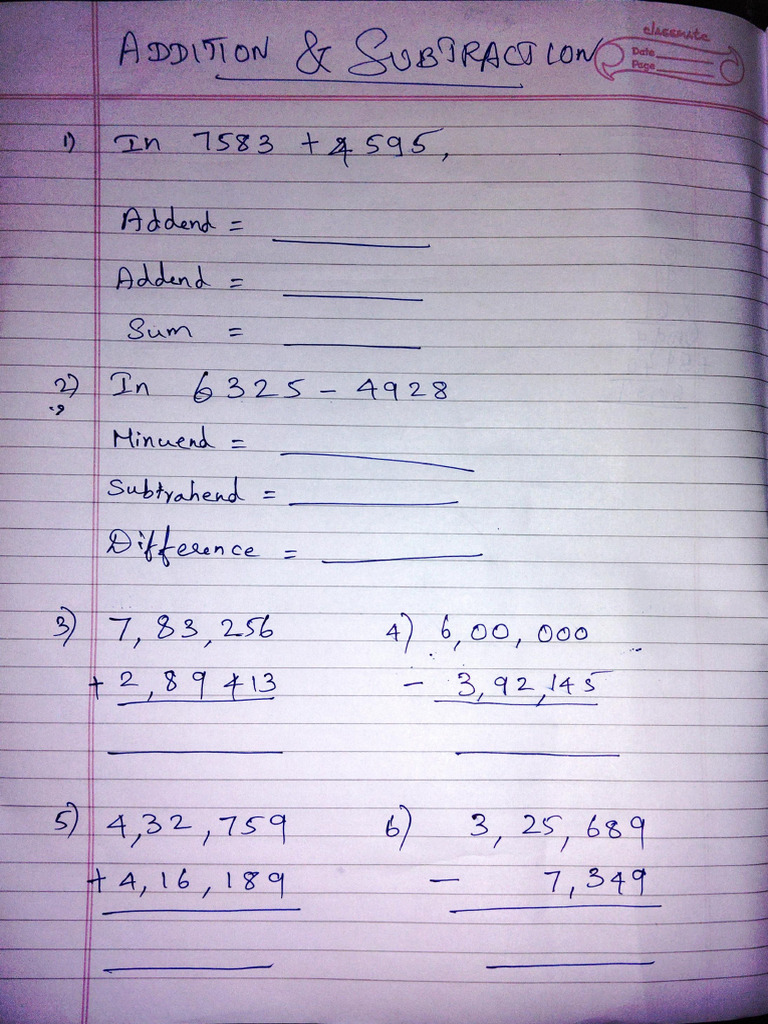 ADDITION & SUBTRACTION
classmate
Date
Page
1) In 7583 + 4595,
Addend =
Addend =
Sum =
2) In 6325 - 4928
Minuend =
Subtrahend =
Difference =
3) 7,83,256 4) 6,00,000
+ 2,89 413 - 3,92,145
5) 4,32,759 6) 3,25,689
+ 4,16,189 - 7,349